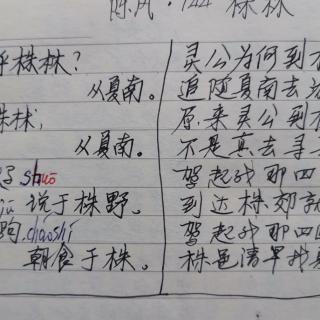 陈风·144 株林
乎株林？
从夏南。
株林，
从夏南。
shuō
说于株野。
驹，cháoshí
朝食于株。
灵公为何到
追随夏南去
原来灵公到
不是真去寻
驾起我那四
到达株郊就
驾起我那四
株邑清早我